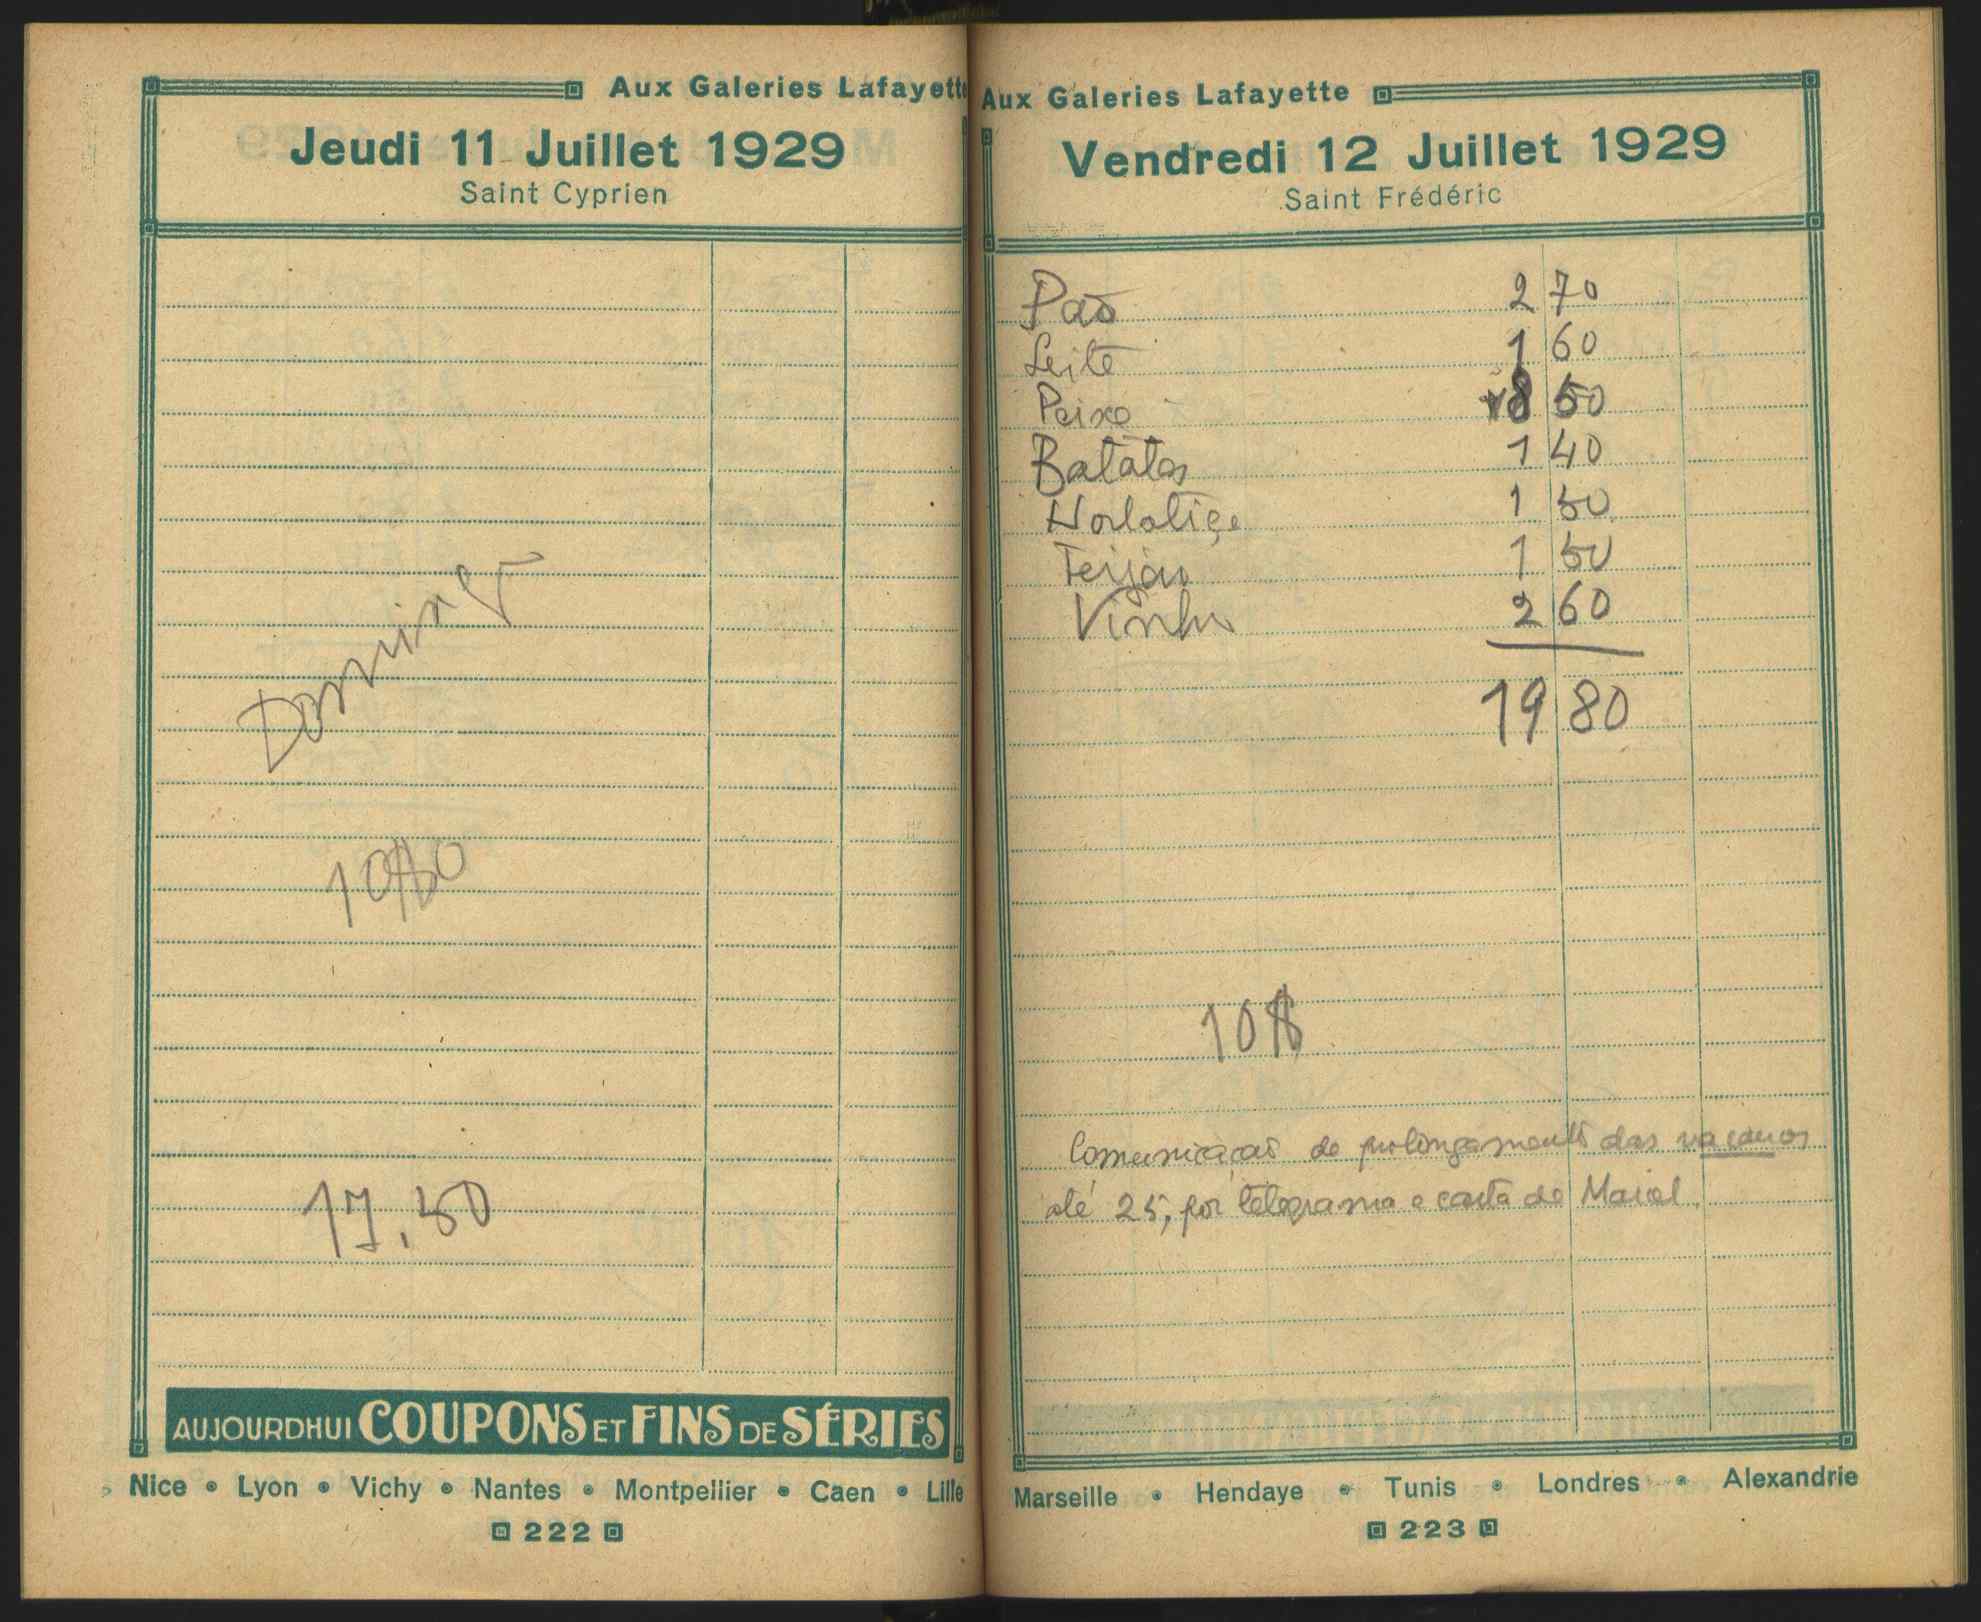 Aux Galeries Lafayette
Jeudi 11 Juillet 1929
Saint Cyprien
10$
17,50
AUJOURDHUI COUPONS ET FINS DE SÉRIES
Nice • Lyon • Vichy • Nantes • Montpellier • Caen • Lille
222
Aux Galeries Lafayette
Vendredi 12 Juillet 1929
Saint Frédéric
Pão 2 70
Leite 1 60
Peixe 8 50
Batatas 1 40
Hortaliça 1 50
Feijão 1 50
Vinho 2 60
19 80
10$
Comunicação do prolongamento das
até 25, por telegrama e carta do Maciel.
Marseille • Hendaye • Tunis • Londres • Alexandrie
223